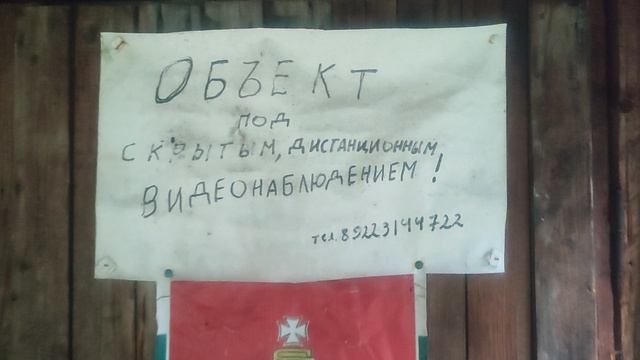 ОБЪЕКТ
ПОД
СКРЫТЫМ, ДИСТАНЦИОННЫМ,
ВИДЕОНАБЛЮДЕНИЕМ!
тел. 89223144722